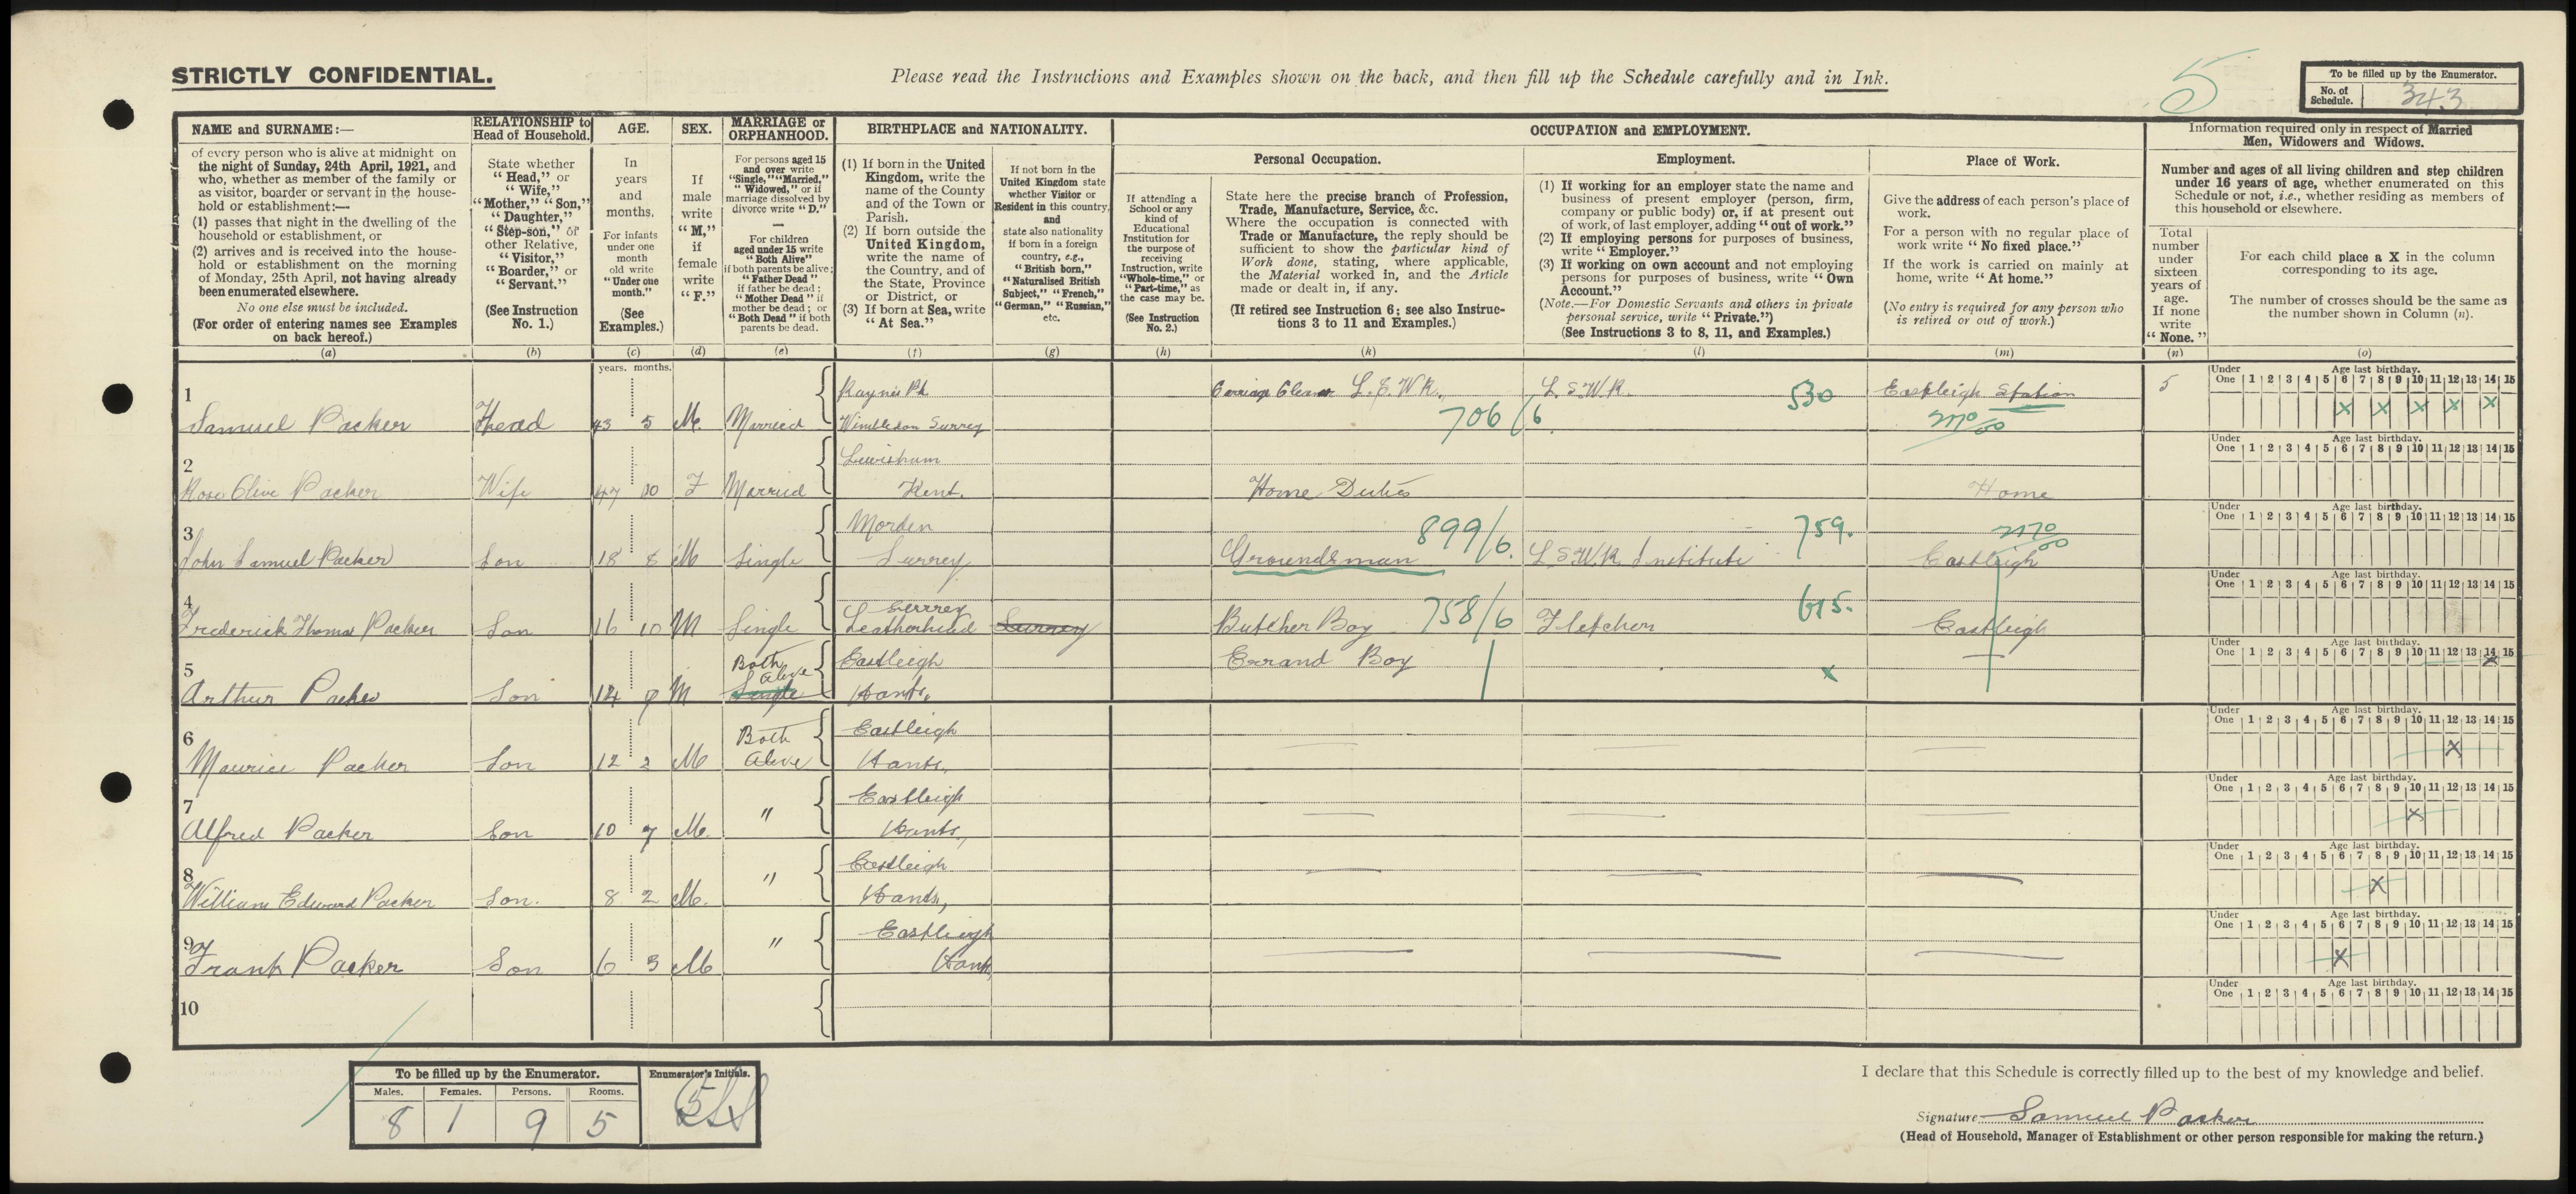 STRICTLY CONFIDENTIAL.
Please read the Instructions and Examples shown on the back, and then fill up the Schedule carefully and in Ink.
5
To be filled up by the Enumerator.
No. of Schedule. 343
NAME and SURNAME:—
of every person who is alive at midnight on
the night of Sunday, 24th April, 1921, and
who, whether as member of the family or
as visitor, boarder or servant in the house-
hold or establishment:—
(1) passes that night in the dwelling of the
household or establishment, or
(2) arrives and is received into the house-
hold or establishment on the morning
of Monday, 25th April, not having already
been enumerated elsewhere.
No one else must be included.
(For order of entering names see Examples
on back hereof.)
(a)
RELATIONSHIP to
Head of Household.
State whether
"Head," or
"Wife,"
"Mother," "Son,"
"Daughter,"
"Step-son," or
other Relative,
"Visitor,"
"Boarder," or
"Servant."
(See Instruction
No. 1.)
(b)
AGE.
In
years
and
months.
For infants
under one
month
old write
"Under one
month."
(See
Examples.)
(c)
SEX.
If
male
write
"M,"
if
female
write
"F."
(d)
MARRIAGE or
ORPHANHOOD.
For persons aged 15
and over write
"Single," "Married,"
"Widowed," or if
marriage dissolved by
divorce write "D."
For children
aged under 15 write
"Both Alive"
if both parents be alive;
"Father Dead"
if father be dead;
"Mother Dead" if
mother be dead; or
"Both Dead" if both
parents be dead.
(e)
BIRTHPLACE and NATIONALITY.
(1) If born in the United
Kingdom, write the
name of the County
and of the Town or
Parish.
(2) If born outside the
United Kingdom,
write the name of
the Country, and of
the State, Province
or District, or
(3) If born at Sea, write
"At Sea."
(f)
If not born in the
United Kingdom state
whether Visitor or
Resident in this country,
and
state also nationality
if born in a foreign
country, e.g.,
"British born,"
"Naturalised British
Subject," "French,"
"German," "Russian,"
etc.
(g)
OCCUPATION and EMPLOYMENT.
If attending a
School or any
kind of
Educational
Institution for
the purpose of
receiving
Instruction, write
"Whole-time," or
"Part-time," as
the case may be.
(See Instruction
No. 2.)
(h)
Personal Occupation.
State here the precise branch of Profession,
Trade, Manufacture, Service, &c.
Where the occupation is connected with
Trade or Manufacture, the reply should be
sufficient to show the particular kind of
Work done, stating, where applicable,
the Material worked in, and the Article
made or dealt in, if any.
(If retired see Instruction 6; see also Instruc-
tions 3 to 11 and Examples.)
(k)
Employment.
(1) If working for an employer state the name and
business of present employer (person, firm,
company or public body) or, if at present out
of work, of last employer, adding "out of work."
(2) If employing persons for purposes of business,
write "Employer."
(3) If working on own account and not employing
persons for purposes of business, write "Own
Account."
(Note.—For Domestic Servants and others in private
personal service, write "Private.")
(See Instructions 3 to 8, 11, and Examples.)
(l)
Place of Work.
Give the address of each person's place of
work.
For a person with no regular place of
work write "No fixed place."
If the work is carried on mainly at
home, write "At home."
(No entry is required for any person who
is retired or out of work.)
(m)
Information required only in respect of Married
Men, Widowers and Widows.
Number and ages of all living children and step children
under 16 years of age, whether enumerated on this
Schedule or not, i.e., whether residing as members of
this household or elsewhere.
Total
number
under
sixteen
years of
age.
If none
write
"None."
(n)
For each child place a X in the column
corresponding to its age.
The number of crosses should be the same as
the number shown in Column (n).
(o)
years. months.
1 Samuel Packer Head 43 5 M. Married Raynes Pk Wimbledon Surrey Carriage Cleaner L.S.W.R. 706/6 L.S.W.R. 530 Eastleigh Station 5
Under One 1 2 3 4 5 6 7 8 9 10 11 12 13 14 15 Age last birthday.
X X X X X
2 Rose Olive Packer Wife 47 10 F Married Lewisham Kent. Home Duties Home
Under One 1 2 3 4 5 6 7 8 9 10 11 12 13 14 15 Age last birthday.
3 John Samuel Packer Son 18 8 M Single Morden Surrey Groundsman 899/6. L.S.W.R. Institute 759. Eastleigh
Under One 1 2 3 4 5 6 7 8 9 10 11 12 13 14 15 Age last birthday.
4 Frederick Thomas Packer Son 16 10 M Single Surrey Leatherhead Surrey Butcher Boy 758/6 Fletcher 615. Eastleigh
Under One 1 2 3 4 5 6 7 8 9 10 11 12 13 14 15 Age last birthday.
5 Arthur Packer Son 14 M Both Alive Single Eastleigh Hants. Errand Boy x
Under One 1 2 3 4 5 6 7 8 9 10 11 12 13 14 15 Age last birthday.
X
6 Maurice Packer Son 12 2 M Both Alive Eastleigh Hants.
Under One 1 2 3 4 5 6 7 8 9 10 11 12 13 14 15 Age last birthday.
X
7 Alfred Packer Son 10 7 M. " Eastleigh Hants.
Under One 1 2 3 4 5 6 7 8 9 10 11 12 13 14 15 Age last birthday.
X
8 William Edward Packer Son. 8 2 M. " Eastleigh Hants,
Under One 1 2 3 4 5 6 7 8 9 10 11 12 13 14 15 Age last birthday.
X
9 Frank Packer Son 6 3 M " Eastleigh Hants
Under One 1 2 3 4 5 6 7 8 9 10 11 12 13 14 15 Age last birthday.
X
10
Under One 1 2 3 4 5 6 7 8 9 10 11 12 13 14 15 Age last birthday.
To be filled up by the Enumerator.
Males. Females. Persons. Rooms.
8 1 9 5
Enumerator's Initials.
I declare that this Schedule is correctly filled up to the best of my knowledge and belief.
Signature Samuel Packer
(Head of Household, Manager of Establishment or other person responsible for making the return.)